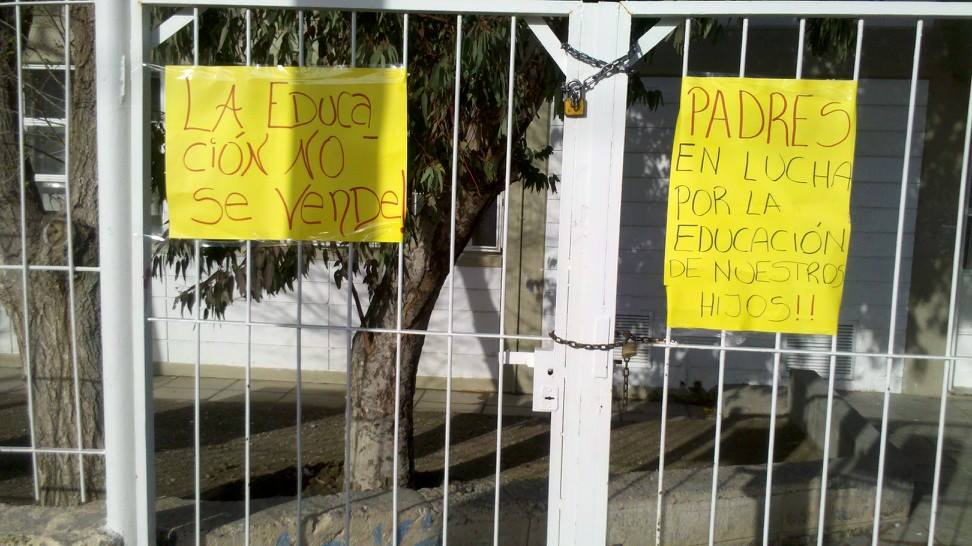 LA EDUCA-
CIÓN NO
SE VENDE!
PADRES
EN LUCHA
POR LA
EDUCACIÓN
DE NUESTROS
HIJOS!!